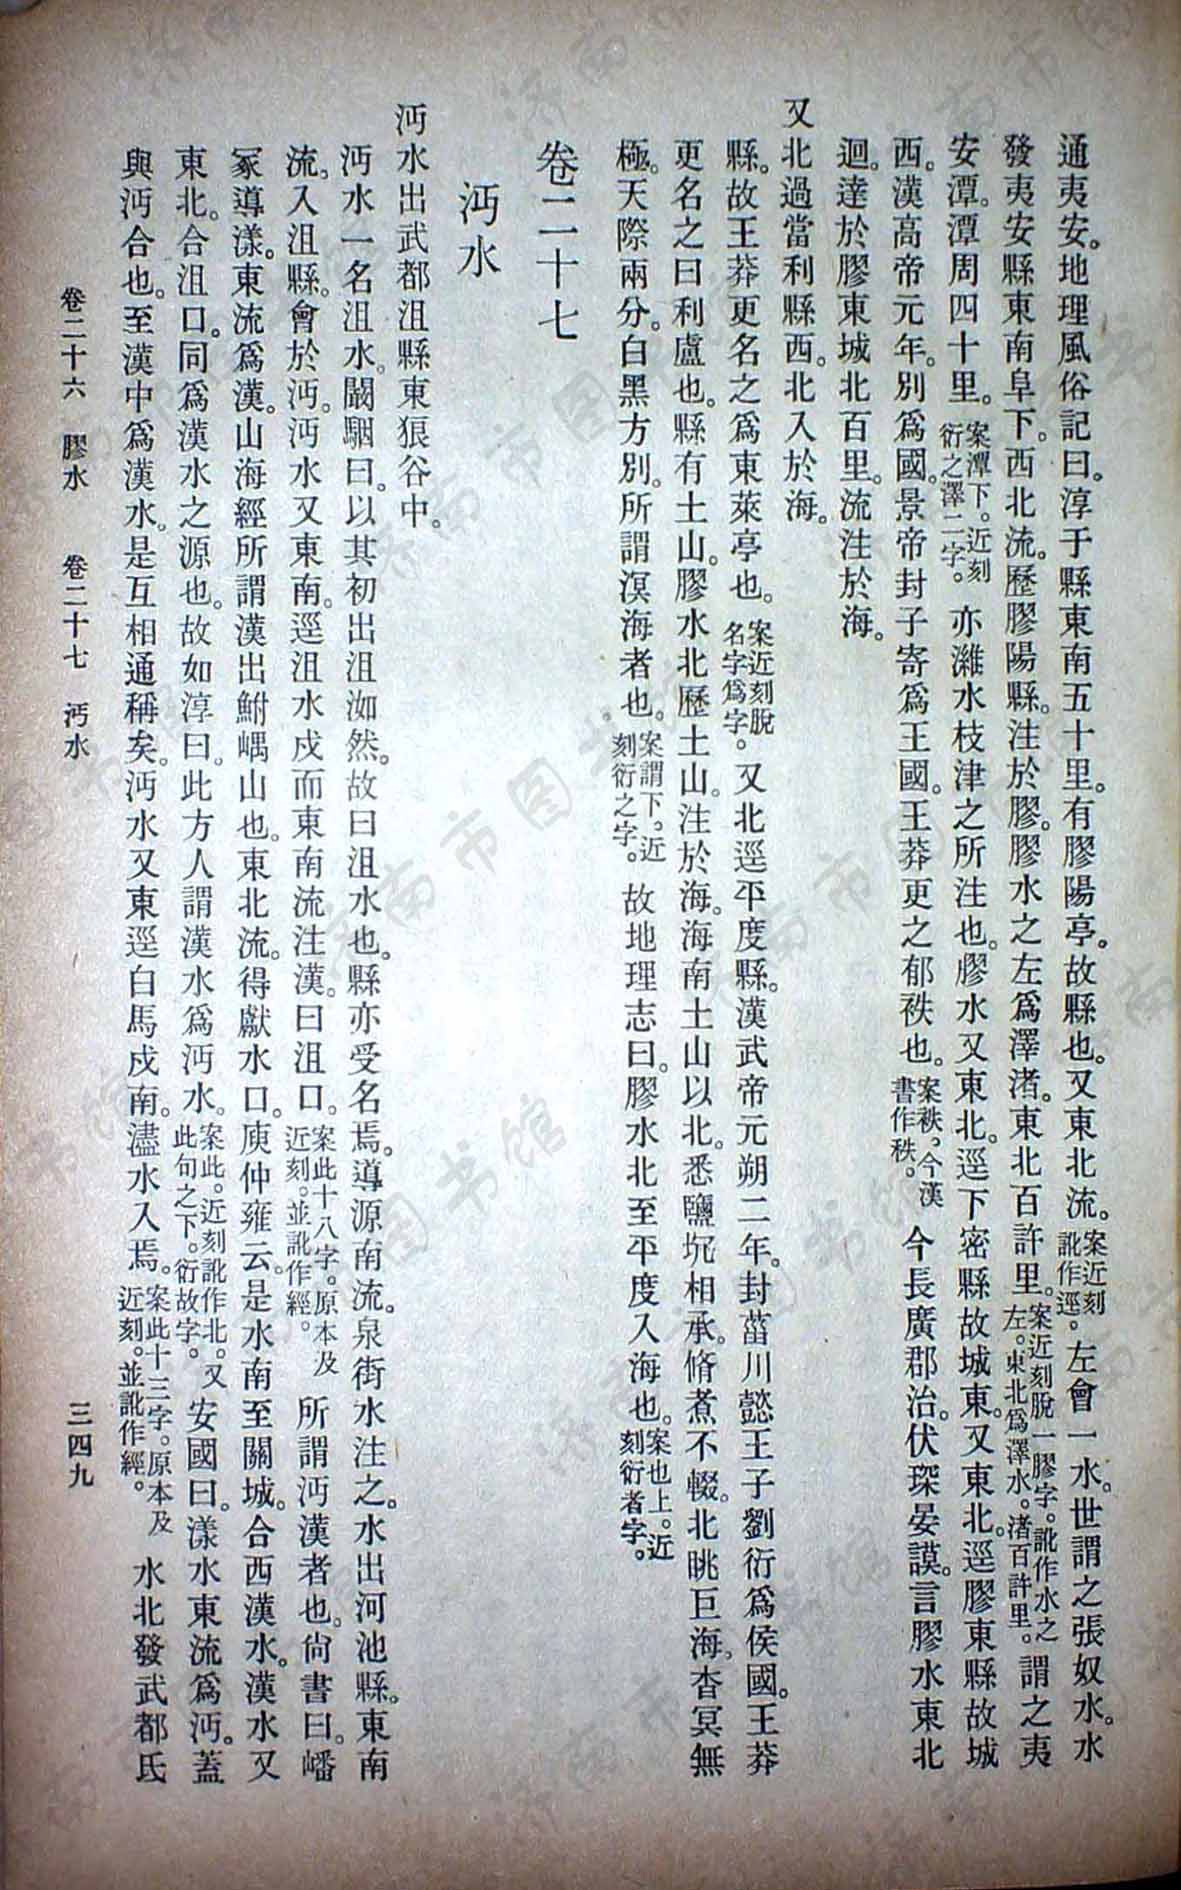 通夷安。地理風俗記曰。淳于縣東南五十里。有膠陽亭。故縣也。又東北流。案近刻訛作逕。左會一水。世謂之張奴水。水
發夷安縣東南阜下。西北流。歷膠陽縣。注於膠。膠水之左爲澤渚。東北百許里。案近刻脫一膠字。訛作水之左。東北爲澤水。渚百許里。謂之夷
安潭。潭周四十里。案潭下。近刻衍之澤二字。亦濰水枝津之所注也。膠水又東北。逕下密縣故城東。又東北。逕膠東縣故城
西。漢高帝元年。別爲國。景帝封子寄爲王國。王莽更之郁袟也。案袟。今漢書作秩。今長廣郡治。伏琛晏謨。言膠水東北
迴。達於膠東城北百里。流注於海。
又北過當利縣西。北入於海。
縣。故王莽更名之爲東萊亭也。案近刻脫名字爲字。又北逕平度縣。漢武帝元朔二年。封菑川懿王子劉衍爲侯國。王莽
更名之曰利盧也。縣有土山。膠水北歷土山。注於海。海南土山以北。悉鹽坈相承。脩煮不輟。北眺巨海。杳冥無
極。天際兩分。白黑方別。所謂溟海者也。案謂下。近刻衍之字。故地理志曰。膠水北至平度入海也。案也上。近刻衍者字。
卷二十七
沔水
沔水出武都沮縣東狼谷中。
沔水一名沮水。闞駰曰。以其初出沮洳然。故曰沮水也。縣亦受名焉。導源南流。泉街水注之。水出河池縣。東南
流。入沮縣。會於沔。沔水又東南。逕沮水戍而東南流。注漢。曰沮口。案此十八字。原本及近刻。並訛作經。所謂沔漢者也。尙書曰。嶓
冢導漾。東流爲漢。山海經所謂漢出鮒嵎山也。東北流。得獻水口。庾仲雍云。是水南至關城。合西漢水。漢水又
東北。合沮口。同爲漢水之源也。故如淳曰。此方人謂漢水爲沔水。案此。近刻訛作北。又此句之下。衍故字。安國曰。漾水東流爲沔。蓋
與沔合也。至漢中爲漢水。是互相通稱矣。沔水又東逕白馬戍南。濜水入焉。案此十三字。原本及近刻。並訛作經。水北發武都氐
卷二十六 膠水 卷二十七 沔水
三四九
济南市图书馆